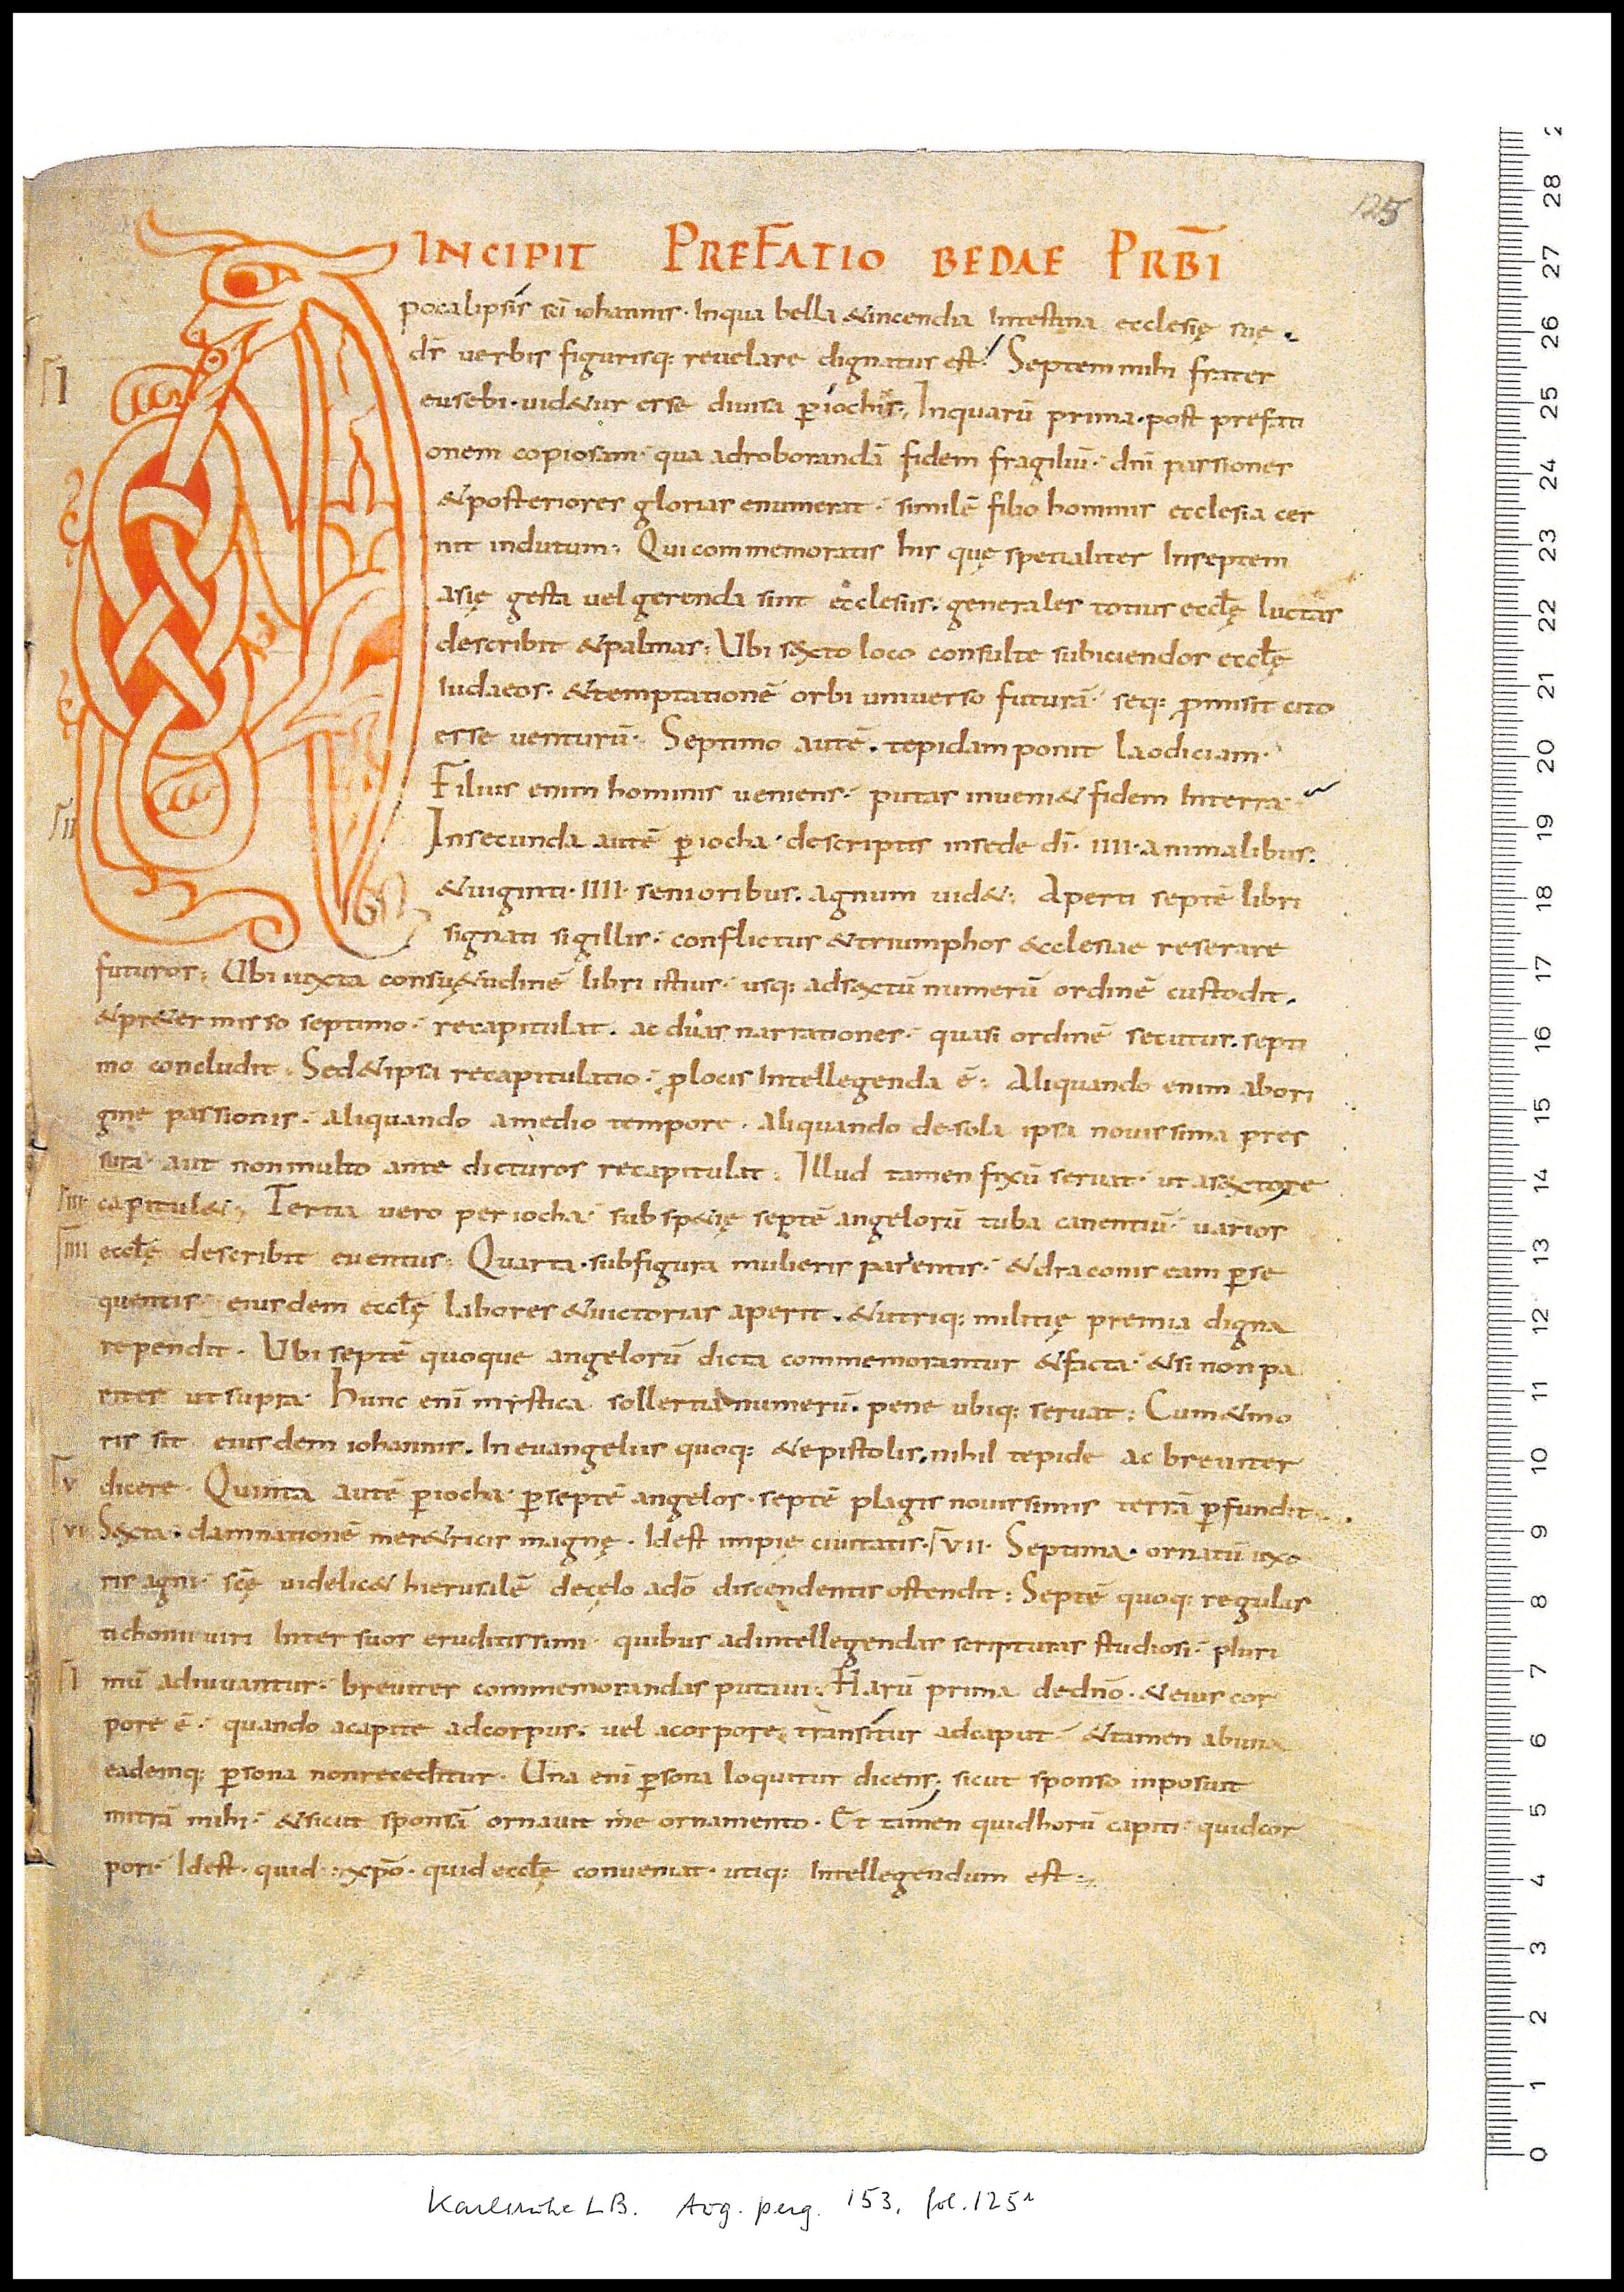 125
INCIPIT PREFATIO BEDAE PRBĪ
pocalipsis sc̄i iohannis· Inqua bella &incendia Intestina ecclesię suę·
d̄s verbis figurisq: reuelare dignatus est· Septem mihi frater
I eusebi· uid&ur esse diuisa ꝑiochis; Inquarū prima· post prefati
onem copiosam· qua adroborandā fidem fragiliū· dn̄i passiones
&posteriores glorias enumerat· similē filio hominis ecclesia cer
nit indutum; Qui commemoratis his quę specialiter Inseptem
asię gesta uel gerenda sint ecclesiis· generales totius eccl̄ę luctas
describit &palmas: Vbi sexto loco consulte subiciendos eccl̄ę
iudaeos· &temptationē orbi universo futurā· seq: ꝓmisit cito
esse venturū· Septimo autē· tepidam ponit laodiciam·
Filius enim hominis ueniens· putas inueni& fidem Interra·
II Insecunda autē ꝑiocha· descriptis insede dī· IIII· animalibus·
&uiginti· IIII· senioribus· agnum uid&; Aperti septē libri
signati sigillis· conflictus &triumphos &cclesiae reserare
futuros: Ubi iuxta consu&udinē libri istius· usq: adsextū numerū ordinē custodit·
&pr&ermisso septimo· recapitulat· ac duas narrationes· quasi ordinē secutus· septi
mo concludit· Sed&ipsa recapitulatio· ꝓlocis Intellegenda ē: Aliquando enim abori
gine passionis· aliquando amedio tempore· aliquando de sola ipsa nouissima pres
sura· aut nonmulto ante dicturos recapitulat: Illud tamen fixū seruat· ut asextore
III capitul&; Tertia vero periocha· subsp&ię septē angelorū tuba canentiū· uarios
IIII eccl̄ę describit euentus: Quarta· subfigura mulieris parentis· &draconis eam ꝑse
quentis· eiusdem eccl̄ę labores &uictorias aperit· &utriq: militię premia digna
rependit· Vbi septē quoque angelorū dicta commemorantur &facta· &si non pa
riter ut supra· hunc enī mystica sollertia numerū· pene ubiq: seruat: Cum&mo
ris sit eiusdem iohannis· In euangeliis quoq: &epistolis· nihil tepide ac breuiter
V dicere· Quinta autē ꝑiocha· ꝑseptē angelos· septē plagis nouissimis terrā ꝑfundit·
VI Sexta· damnationē mer&ricis magnę· Idest impię ciuitatis· VII· Septima· ornatū uxo
ris agni· sc̄ę uidelic& hierusalē decęlo adō discendentis ostendit: Septē quoq: regulas
tichonii uiri Inter suos eruditissimi· quibus adintellegendas scripturas studiosi· pluri
I mū adiuuantur· breuiter commemorandas putaui: Harū prima dedn̄o· &eius cor
pore ē· quando acapite adcorpus· vel acorpore transitur adcaput· &tamen abuna
eademq: ꝑsona nonreceditur· Una enī ꝑsona loquitur dicens; sicut sponso inposuit
mitrā mihi· &sicut sponsā ornauit me ornamento· Et tamen quidhorū capiti· quidcor
pori· Idest· quid xp̄o· quid eccl̄ę conueniat· utiq: Intellegendum est·
Karlsruhe LB. Aug. perg. 153, fol. 125r
2
28
27
26
25
24
23
22
21
20
19
18
17
16
15
14
13
12
11
10
9
8
7
6
5
4
3
2
1
0